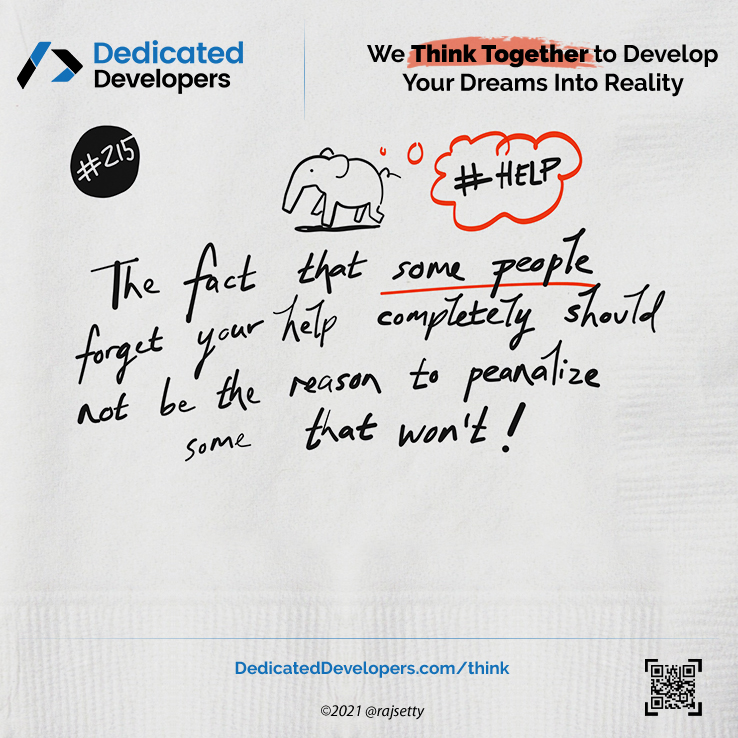 Dedicated
Developers
We Think Together to Develop
Your Dreams Into Reality
#215
#HELP
The fact that some people
forget your help completely should
not be the reason to peanalize
some that won't!
DedicatedDevelopers.com/think
©2021 @rajsetty